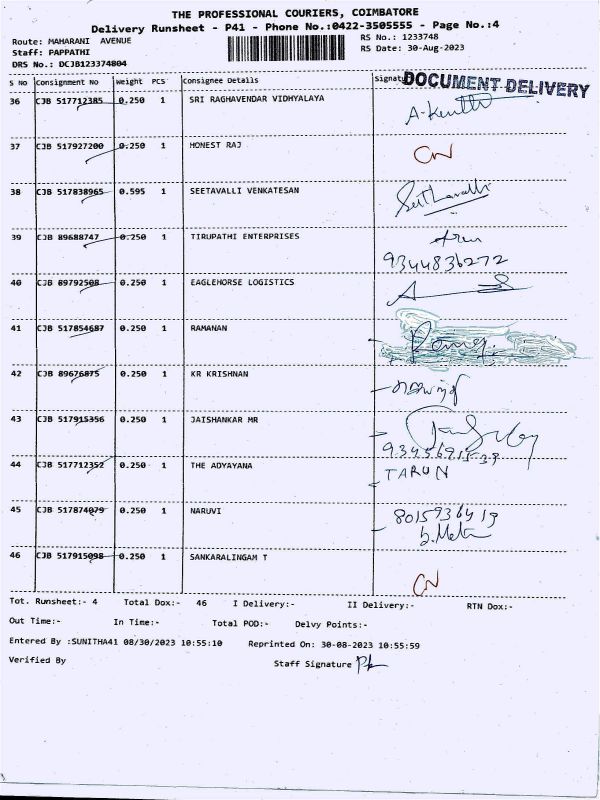 THE PROFESSIONAL COURIERS, COIMBATORE
Delivery Runsheet - P41 - Phone No.:0422-3505555 - Page No.:4
Route: MAHARANI AVENUE
RS No.: 1233748
Staff: PAPPATHI
RS Date: 30-Aug-2023
DRS No.: DCJB123374804
DOCUMENT DELIVERY
S No Consignment No Weight PCS Consignee Details
36 CJB 517712385 0.250 1 SRI RAGHAVENDAR VIDHYALAYA
37 CJB 517927200 0.250 1 HONEST RAJ CN
38 CJB 517838965 0.595 1 SEETAVALLI VENKATESAN
39 CJB 89688747 0.250 1 TIRUPATHI ENTERPRISES
9344836272
40 CJB 89792508 0.250 1 EAGLEHORSE LOGISTICS
41 CJB 517854687 0.250 1 RAMANAN
42 CJB 89676875 0.250 1 KR KRISHNAN
43 CJB 517915356 0.250 1 JAISHANKAR MR
44 CJB 517712352 0.250 1 THE ADYAYANA TARUN
45 CJB 517874079 0.250 1 NARUVI 8015936419
46 CJB 517915098 0.250 1 SANKARALINGAM T CN
Tot. Runsheet:- 4 Total Dox:- 46 I Delivery:- II Delivery:- RTN Dox:-
Out Time:- In Time:- Total POD:- Delvy Points:-
Entered By :SUNITHA41 08/30/2023 10:55:10 Reprinted On: 30-08-2023 10:55:59
Verified By Staff Signature